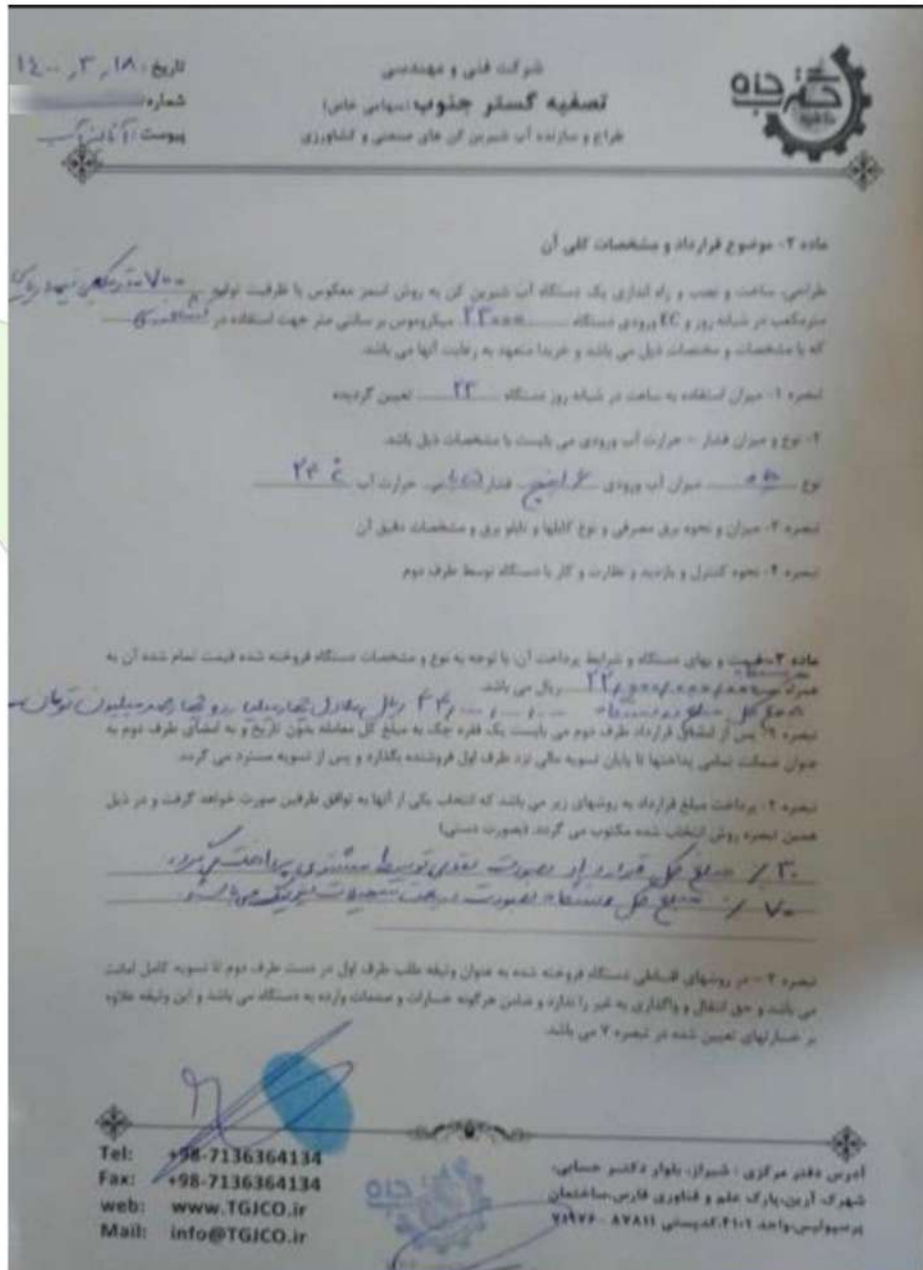 شرکت فنی و مهندسی
تصفیه گستر جنوب (سهامی خاص)
طراح و سازنده آب شیرین کن های صنعتی و کشاورزی
تاریخ: ۱۴۰۰,۳,۱۸
شماره:
پیوست: آنالیز آب
ماده ۲- موضوع قرارداد و مشخصات کلی آن
طراحی، ساخت و نصب و راه اندازی یک دستگاه آب شیرین کن به روش اسمز معکوس با ظرفیت تولید ۷۰۰ مترمکعب
مترمکعب در شبانه روز و EC ورودی دستگاه ۲۳۰۰۰ میکروموس بر سانتی متر جهت استفاده در
که با مشخصات و مختصات ذیل می باشد و خریدار متعهد به رعایت آنها می باشد.
تبصره ۱- میزان استفاده به ساعت در شبانه روز دستگاه ۲۳ تعیین گردیده
۲- نوع و میزان فشار - حرارت آب ورودی می بایست با مشخصات ذیل باشد.
نوع چاه میزان آب ورودی ۶ اینچ فشار حرارت آب ۲۴ °C
تبصره ۳- میزان و نحوه برق مصرفی و نوع کابلها و تابلو برق و مشخصات دقیق آن
تبصره ۴- نحوه کنترل و بازدید و نظارت و کار با دستگاه توسط طرف دوم
ماده ۳- قیمت و بهای دستگاه و شرایط پرداخت آن: با توجه به نوع و مشخصات دستگاه فروخته شده قیمت تمام شده آن به
همراه ۲۲/۰۰۰/۰۰۰/۰۰۰ ریال می باشد.
مبلغ کل دو دستگاه ۴۴/۰۰۰/۰۰۰/۰۰۰ ریال معادل چهار میلیارد و چهارصد میلیون تومان
تبصره ۱- پس از امضای قرارداد طرف دوم می بایست یک فقره چک به مبلغ کل معامله بدون تاریخ و به امضای طرف دوم به
عنوان ضمانت تمامی پرداختها تا پایان تسویه مالی نزد طرف اول فروشنده بگذارد و پس از تسویه مسترد می گردد.
تبصره ۲- پرداخت مبلغ قرارداد به روشهای زیر می باشد که انتخاب یکی از آنها به توافق طرفین صورت خواهد گرفت و در ذیل
همین تبصره روش انتخاب شده مکتوب می گردد. (بصورت دستی)
۳۰٪ مبلغ کل قرارداد بصورت نقدی توسط مشتری پرداخت میگردد.
۷۰٪ مبلغ کل دستگاه بصورت
تبصره ۳- در روشهای اقساطی دستگاه فروخته شده به عنوان وثیقه طلب طرف اول در دست طرف دوم تا تسویه کامل امانت
می باشد و حق انتقال و واگذاری به غیر را ندارد و ضامن هرگونه خسارات و صدمات وارده به دستگاه می باشد و این وثیقه علاوه
بر خسارتهای تعیین شده در تبصره ۷ می باشد.
Tel: +98-7136364134
Fax: +98-7136364134
web: www.TGJCO.ir
Mail: info@TGJCO.ir
آدرس دفتر مرکزی: شیراز، بلوار دکتر حسابی،
شهرک آرین، پارک علم و فناوری فارس، ساختمان
پرسپولیس، واحد ۴۱۰۲، کدپستی ۸۷۸۱۱ - ۷۱۹۷۶